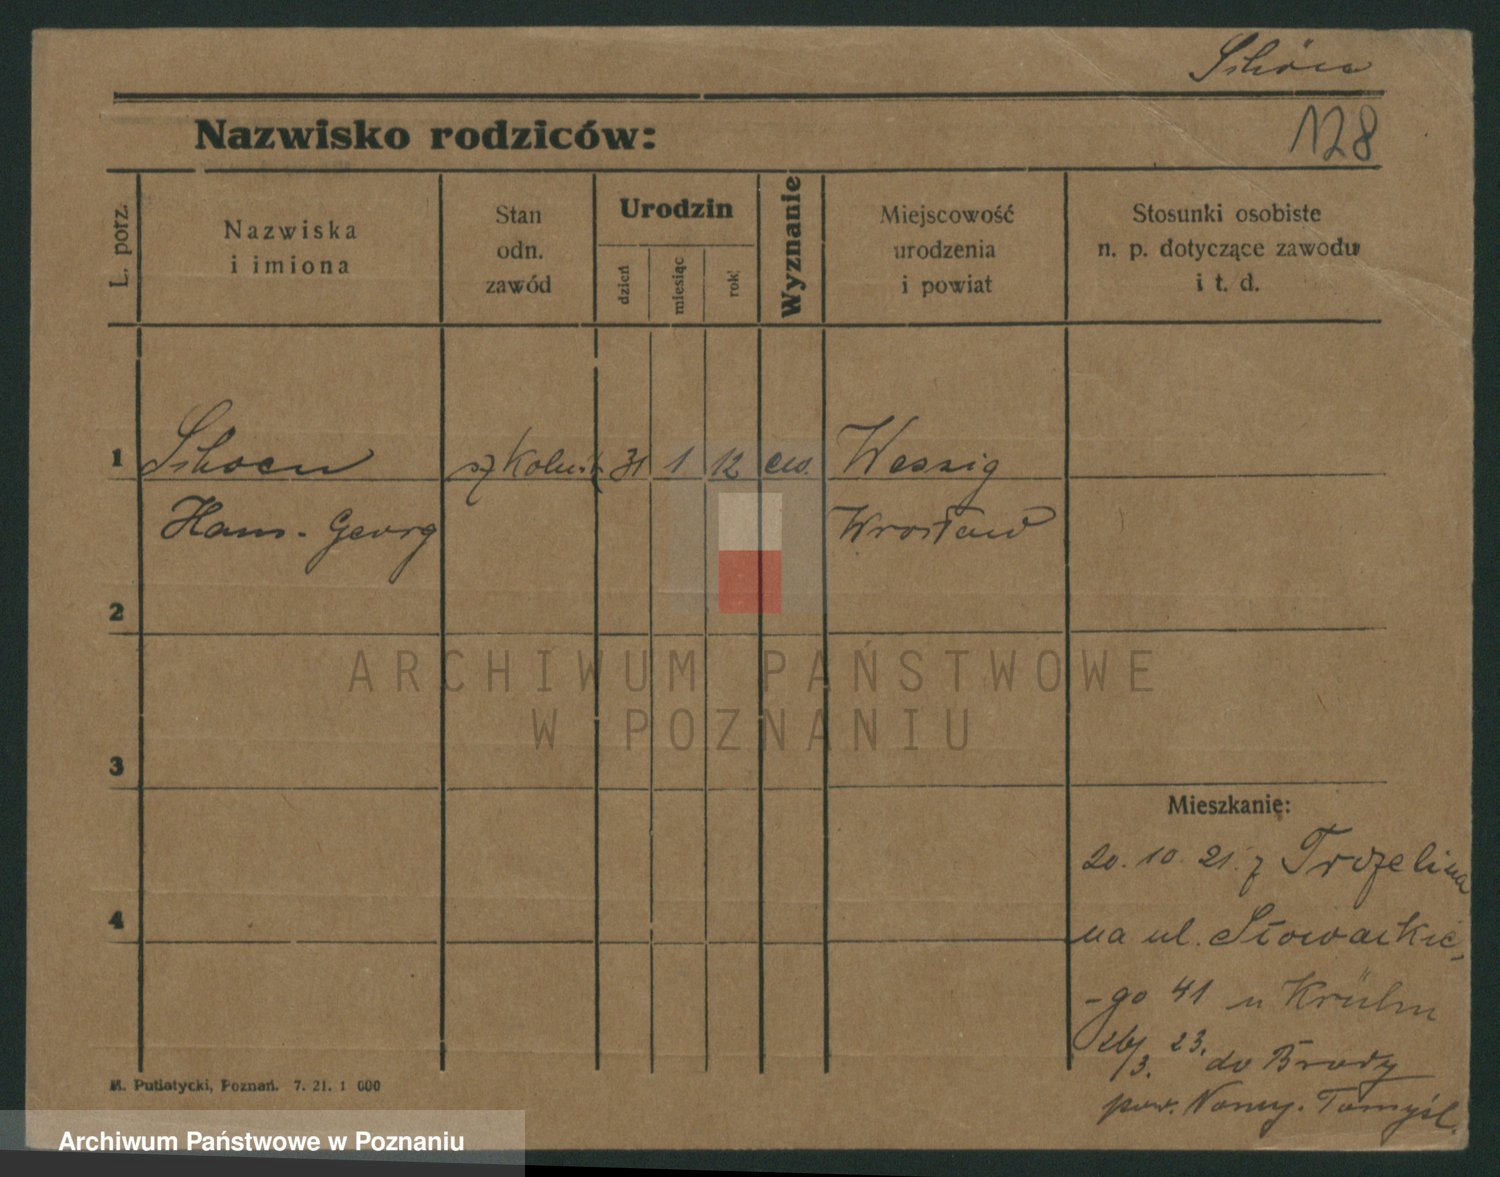 Schön
128
Nazwisko rodziców:
L. porz.
Nazwiska
i imiona
Stan
odn.
zawód
Urodzin
dzień
miesiąc
rok
Wyznanie
Miejscowość
urodzenia
i powiat
Stosunki osobiste
n. p. dotyczące zawodu
i t. d.
1
Schoen szkolnik 31 1 12 ew. Wessig
Hans-Georg Wrosław
2
ARCHIWUM PAŃSTWOWE
W POZNANIU
3
Mieszkanie:
20.10.21. z Trzelina
4
na ul. Słowackie,
-go 41 u
26/3. 23. do Brody
pow. Nowy. Tomyśl.
M. Putiatycki, Poznań. 7. 21. 1 000
Archiwum Państwowe w Poznaniu